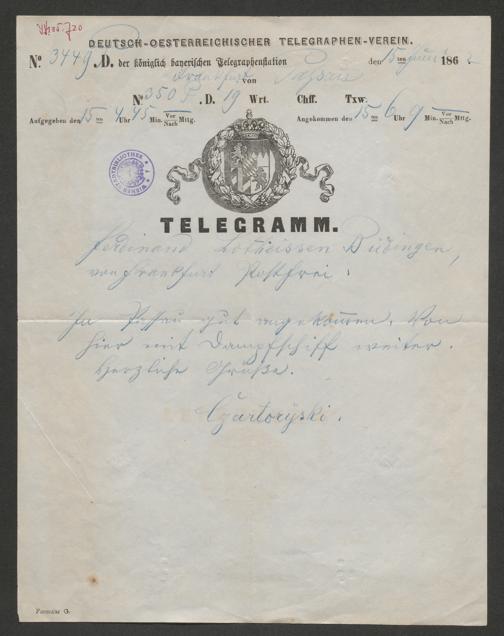 DEUTSCH-OESTERREICHISCHER TELEGRAPHEN-VEREIN.
N⁰· 3449 D. der königlich bayerischen Telegraphenstation den 15ten Juni 1862
Frankfurt von Passau
N 350 D. 19 Wrt. Chff. Txw.
Aufgegeben den 15ten 4 Uhr 45 Min. Vor/Nach Mttg. Angekommen den 15ten 6 Uhr 9 Min. Vor/Nach Mttg.
WIENER STADTBIBLIOTHEK
TELEGRAMM.
Ferdinand Lotheissen Büdingen,
von Frankfurt Postfrei.
In Passau gut angekommen. Von
hier mit Dampfschiff weiter.
Herzliche Grüße.
Czartoryski.
Formular G.